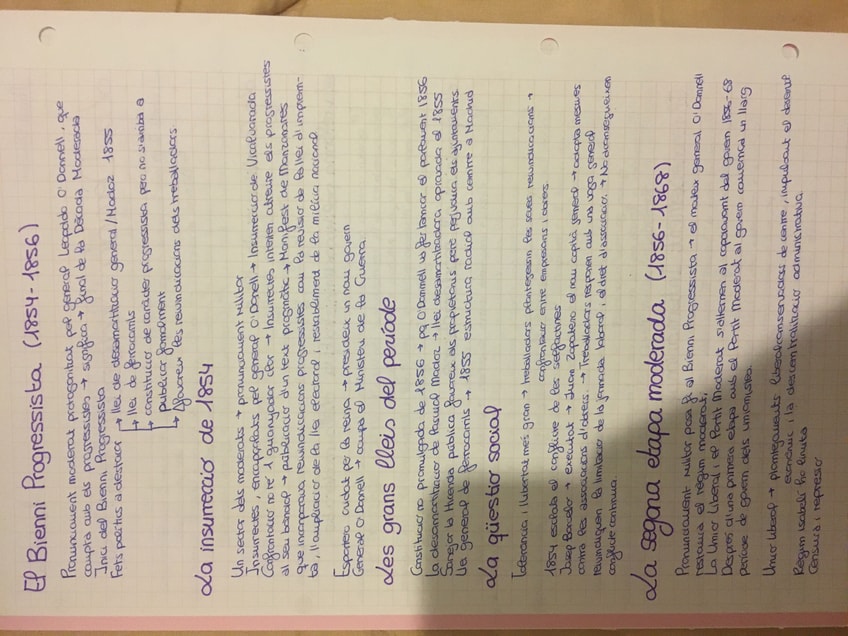 El Bienni Progressista (1854-1856)
Pronunciament moderat protagonitzat pel general Leopoldo O'Donnell, que
compta amb els progressistes → significa → final de la Dècada Moderada
Inici del Bienni Progressista
Fets polítics a destacar → llei de desamortització general/Madoz 1855
→ llei de ferrocarrils
→ constitució de caràcter progressista però no s'arriba a
publicar formalment
→ Afloren les reivindicacions dels treballadors
La insurrecció de 1854
Un sector dels moderats → pronunciament militar
Insurrectes, encapçalats pel general O'Donell → Insurrecció de Vicalvarada
Confrontació no té 1 guanyador clar → Insurrectes intenten atreure els progressistes
al seu bàndol → publicació d'un text pragmàtic → Manifest de Manzanares
que incorpora reivindicacions progressistes com la revisió de la llei d'imprem-
ta, l'ampliació de la llei electoral i restabliment de la milícia nacional
Espartero cridat per la reina → presideix un nou govern
General O'Donell → ocupa el Ministeri de la Guerra
Les grans lleis del període
Constitució no promulgada de 1856 → pq O'Donnell va fer tancar el parlament 1856
La desamortització de Pascual Madoz → llei desamortitzadora aprovada el 1855
Sanejar la Hisenda pública, afavoreix els propietaris però perjudica els ajuntaments
Llei general de ferrocarrils → 1855 estructura radial amb centre a Madrid
La qüestió social
Tolerància i llibertat més gran → treballadors plantegessin les seves reivindicacions →
confrontació entre empresaris i obrers.
1854 esclata el conflicte de les selfactines
Josep Barceló → executat → Juan Zapatero el nou capità general → adopta mesures
contra les associacions d'obrers. → Treballadors responen amb una vaga general
reivindiquen la limitació de la jornada laboral i el dret d'associació. → No ho aconsegueixen
conflicte continua.
La segona etapa moderada (1856-1868)
Pronunciament militar posa fi al Bienni Progressista → el mateix general O'Donell
restaura el règim moderat.
La Unión Liberal i el Partit Moderat, s'alternen al capdavant del govern 1856-68
Després d'una primera etapa amb el Partit Moderat al govern comença un llarg
període de govern dels unionistes.
Unión liberal → plantejaments liberalconservadors de centre, impulsant el desenvol
econòmic i la descentralització administrativa.
Règim isabelí fig limitat
Censura i repressió